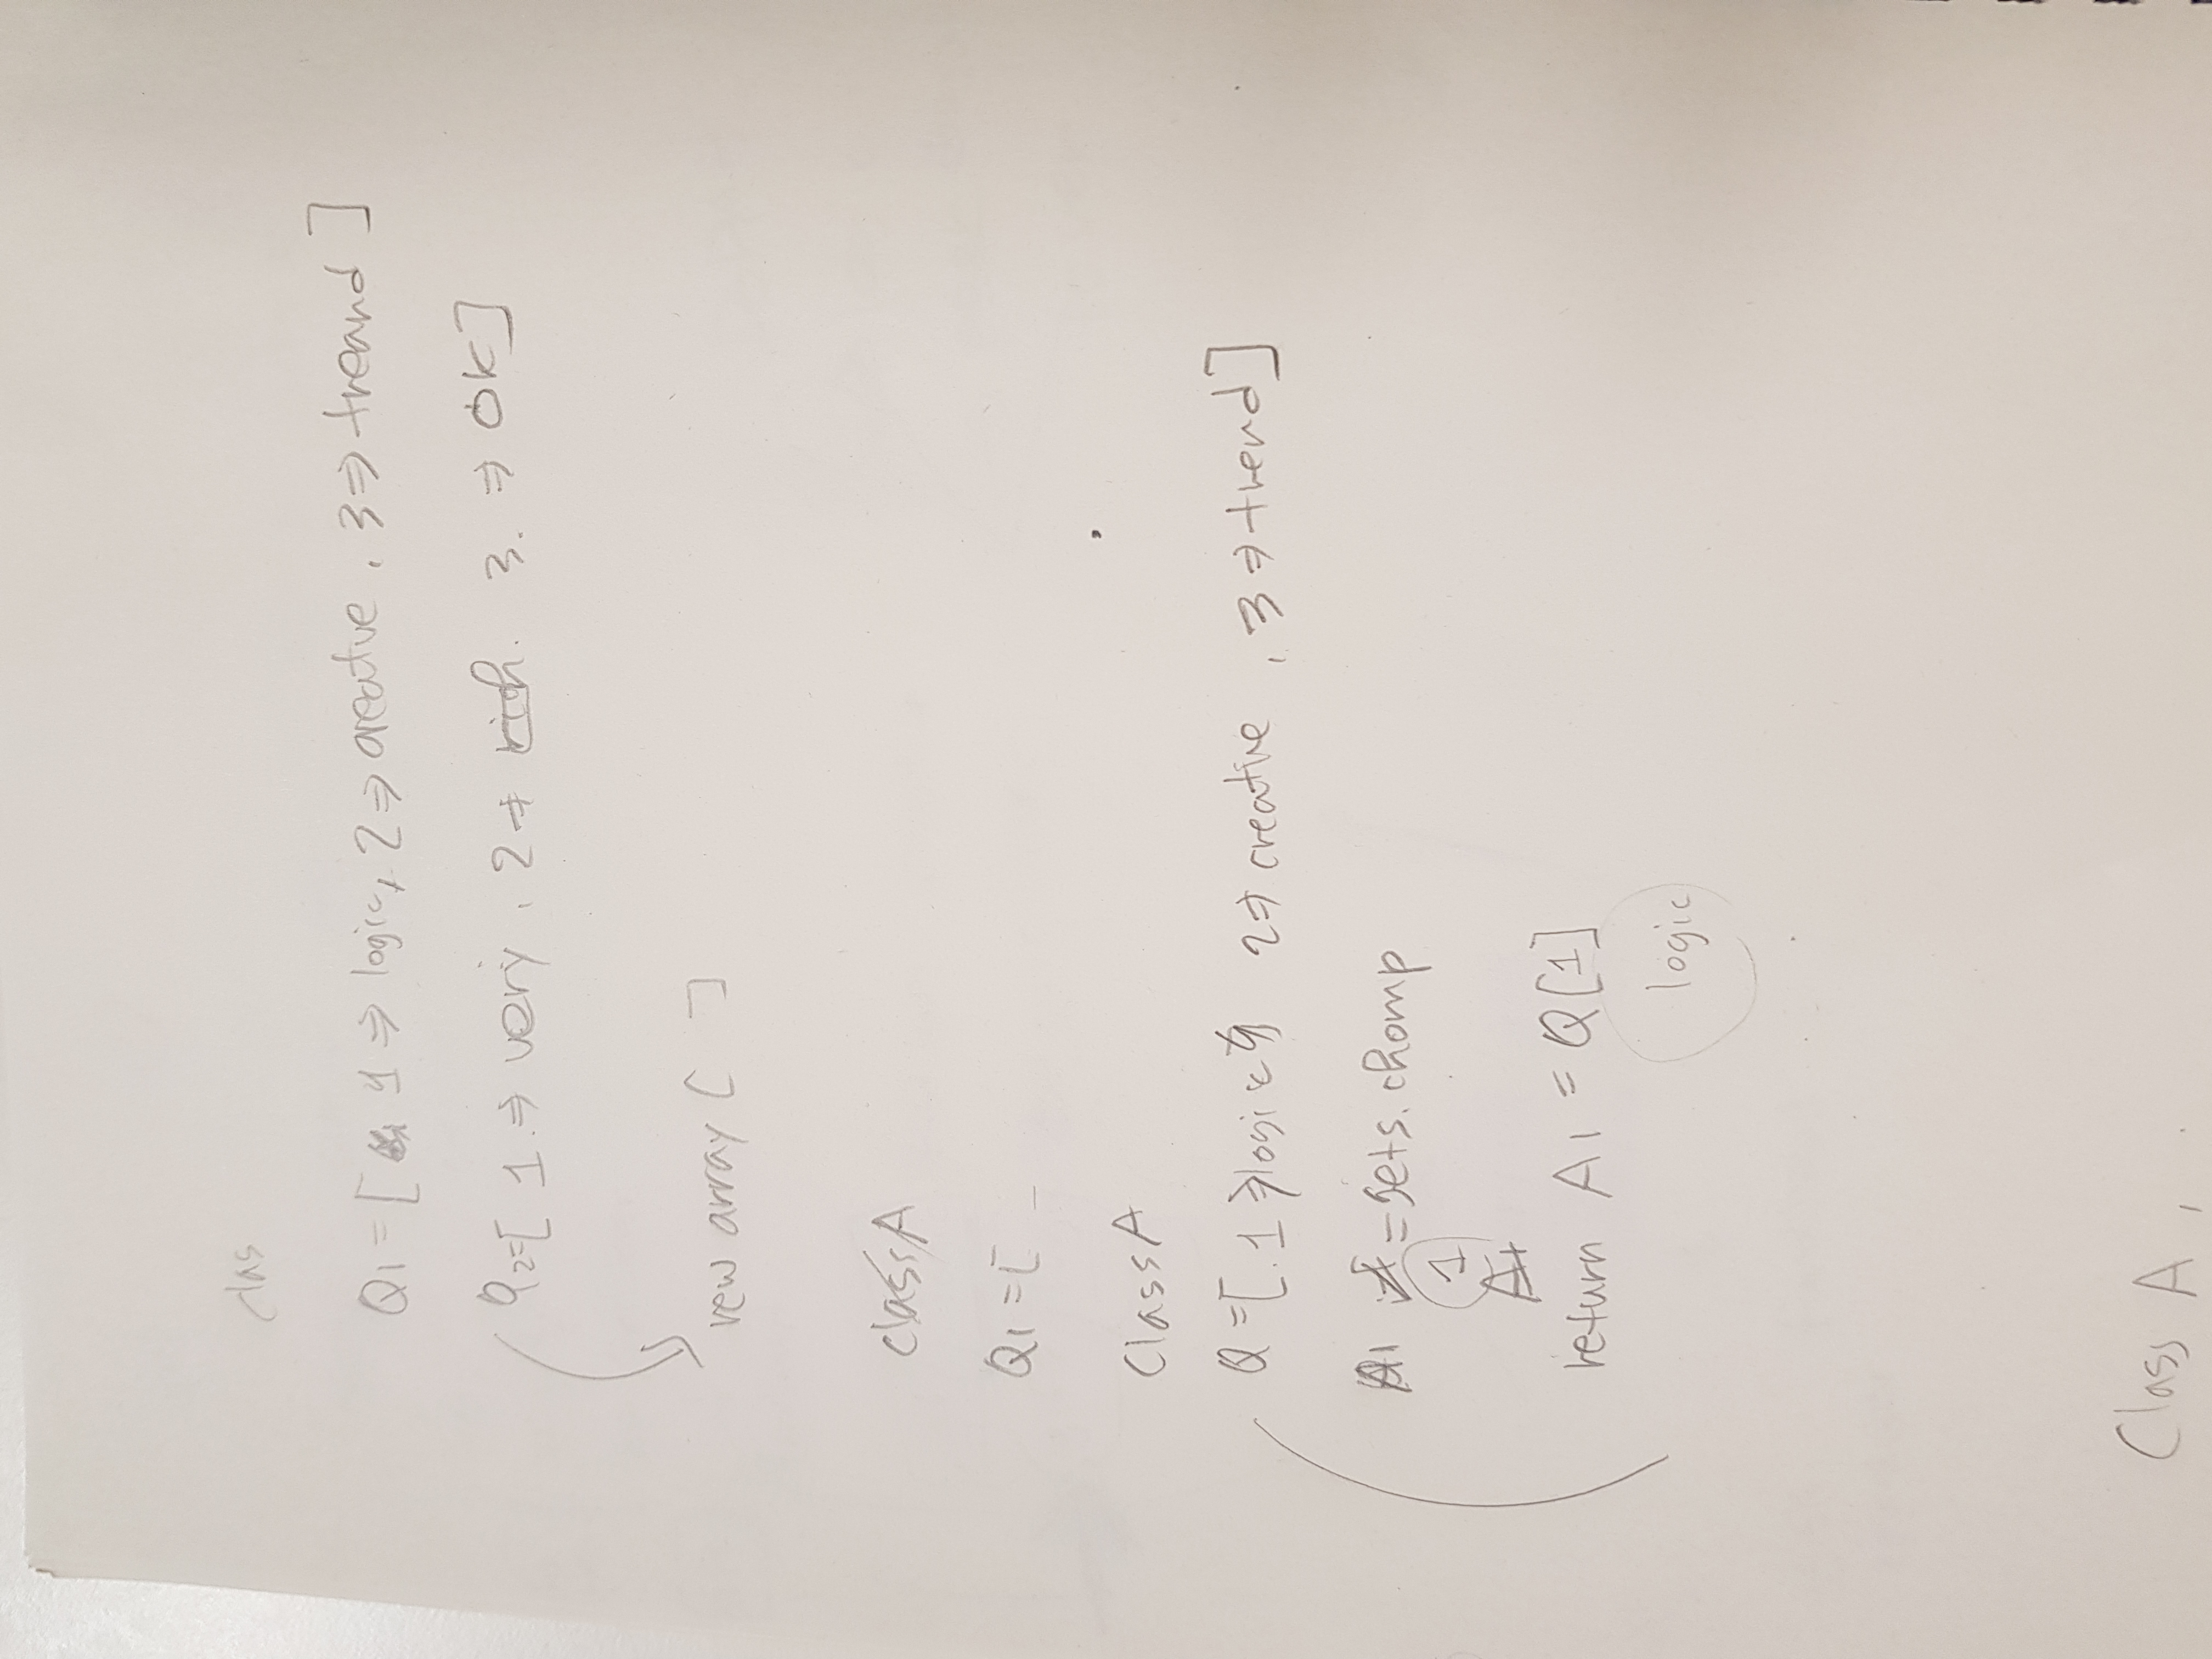 clas
Q1 = [ 1 => logic, 2 => creatve, 3 => treand ]
Q2=[ 1. => very, 2 => rich. 3. => OK]
new array [ ]
classA
Q1 = [ _
ClassA
Q = [. 1 => logic 2 => creative , 3 => trend]
A1 = gets. chomp
1
A1
return A1 = Q[1]
logic
Class A ,